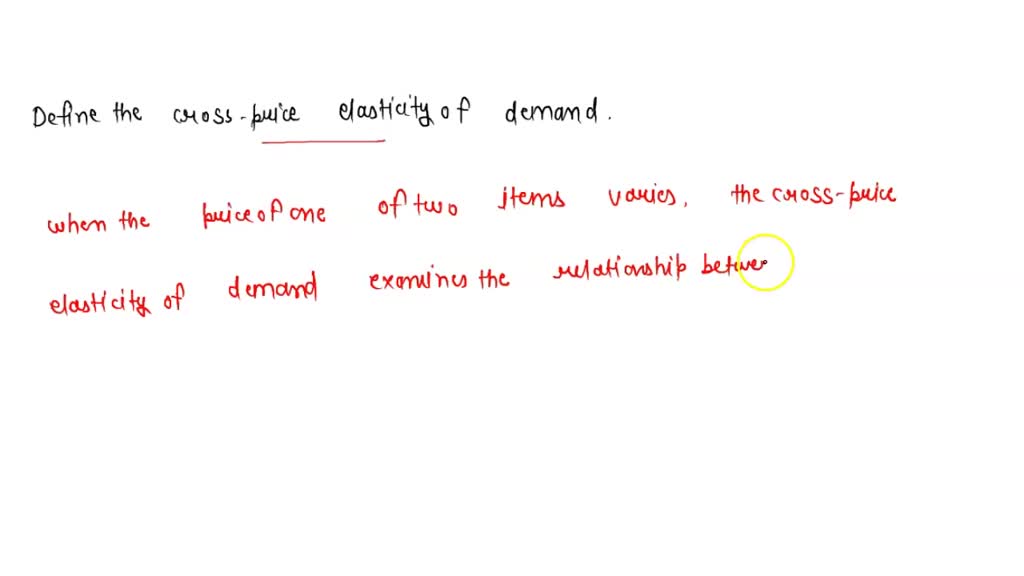 Define the cross-price elasticity of demand.
when the price of one of two items varies, the cross-price
elasticity of demand examines the relationship betwee